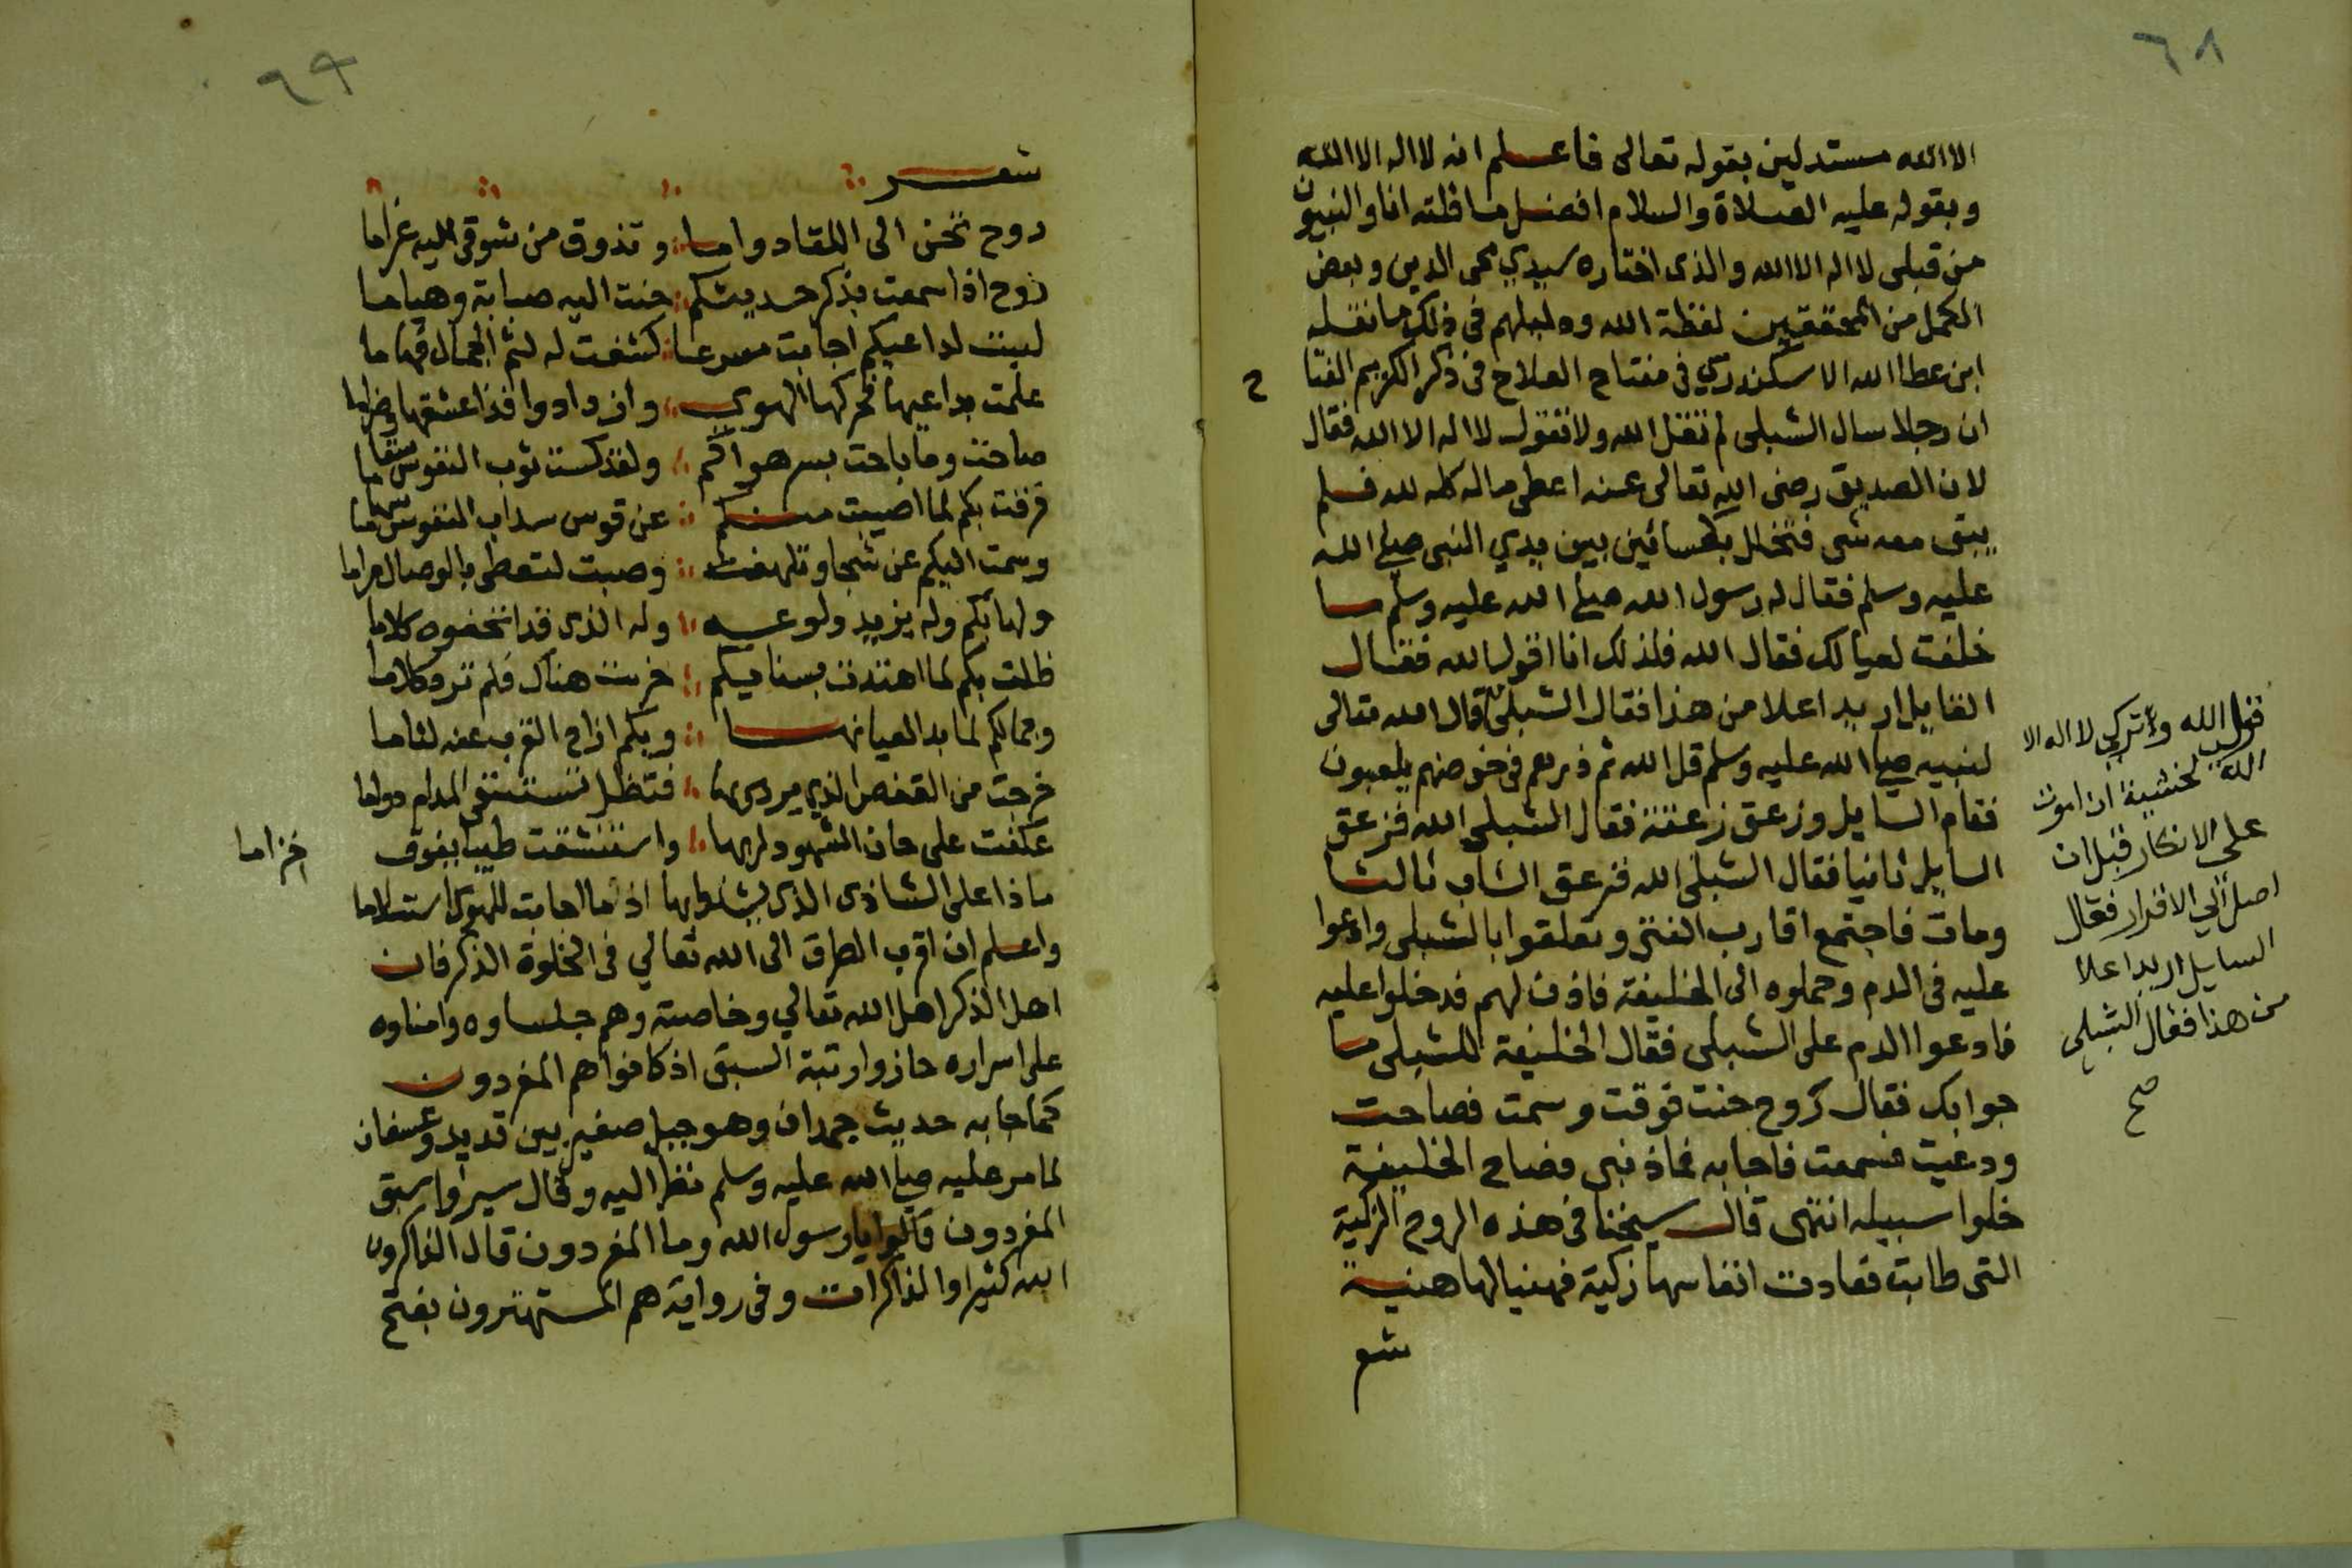 ٦٨
الا الله مستدلين بقوله تعالى فاعلم انه لا اله الا الله
وبقوله عليه الصلاة والسلام افضل ما قلته انا والنبيون
من قبلى لا اله الا الله والذى اختاره سيدي محى الدين وبعض
الكمل من المحققين لفظة الله ودليلهم فى ذلك ما نقله
ابن عطا الله الاسكندري فى مفتاح الفلاح فى ذكر الكريم الفتا
ح
ان رجلا سال الشبلى لم تقل الله ولا تقول لا اله الا الله فقال
لان الصديق رضى الله تعالى عنه اعطى ماله كله لله فلم
يبق معه شى فتخلل بكسائين بين يدي النبى صلى الله
عليه وسلم فقال له رسول الله صلى الله عليه وسلم ما
خلفت لعيالك فقال الله فلذلك انا اقول الله فقال
القايل اريد اعلا من هذا فقال الشبلى قال الله تعالى
لنبيه صلى الله عليه وسلم قل الله ثم ذرهم فى خوضهم يلعبون
فقام السايل وزعق زعقة فقال الشبلى الله فزعق
السايل ثانيا فقال الشبلى الله فزعق الشاب ثالثا
ومات فاجتمع اقارب الفتى وتعلقوا بالشبلى وادعوا
عليه فى الدم وحملوه الى الخليفة فاذن لهم فدخلوا عليه
فادعوا الدم على الشبلى فقال الخليفة للشبلى ما
جوابك فقال روح حنت فوقت وسمت فصاحت
ودعيت فسمعت فاجابه فماذنبى فصاح الخليفة
خلوا سبيله انتهى قال شيخنا فى هذه الروح الزكية
التى طابت فعادت انفاسها زكية فهنيا لها هنية
شع
فقل الله واترك لا اله الا
الله لخشية ان اموت
على الانكار قبل ان
اصل الي الاقرار فقال
السايل اريد اعلا
من هذا فقال الشبلى
صح
٦٩
شعر
روح تحن الى اللقاء دواما وتذوق من شوقى اليه غراما
روح اذا سمعت بذكر حديثكم حنت اليه صبابة وهياما
لبيت لداعيكم اجابت مسرعا كشفت له لثم الجمال فهاما
علمت بداعيها فحركها الهوي وان دادوا فذا عشقها ضراما
صاحت وما باحت بسر هواكم ولقد كست ثوب النفوس سقاما
قزفت بكم لما اصيبت منكم عن قوس سداب النفوس سهاما
وسمت اليكم عن شجا وتلهفت وصبت لتعطى بالوصال مراما
ولها بكم وله يزيد ولوعه وله الذى قد انخفوه كلاما
ظلت بكم لما اهتدت بسناميكم خرست هناك فلم ترد كلاما
وجمالكم لما بدا لعيانها وبكم ازاح القرب عنه لثاما
خرجت من القفص الذي مردى بها فتظل تستسقى المدام دواما
عكفت على حان الشهود لربها واستنشقت طيبا يفوق
خزاما
ماذا على الشاذى الذى يشدو بها اذما اجابت للهوى استسلاما
واعلم ان اقرب الطرق الى الله تعالي فى الخلوة الذكر فان
اهل الذكر اهل الله تعالي وخاصته وهم جلساوه وامناوه
على اسراره حازوا رتبة السبق اذ كانوا هم المفردون
كما جا به حديث جمدان وهو جبل صغير بين قديد وعسفان
لما مر عليه صلى الله عليه وسلم نظر اليه وقال سيروا سبق
المفردون قالوا يا رسول الله وما المفردون قال الذاكرون
الله كثيرا والذاكرات وفى رواية هم المستهترون بفتح